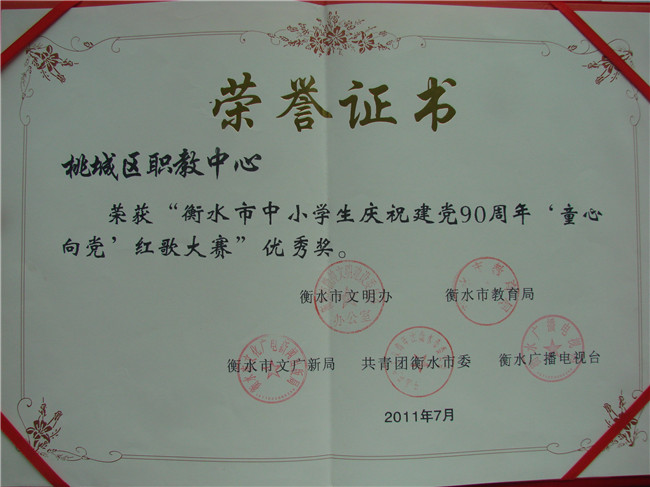 荣誉证书
桃城区职教中心
荣获“衡水市中小学生庆祝建党90周年‘童心
向党’红歌大赛”优秀奖。
衡水市文明办 衡水市教育局
衡水市文广新局 共青团衡水市委 衡水广播电视台
2011年7月